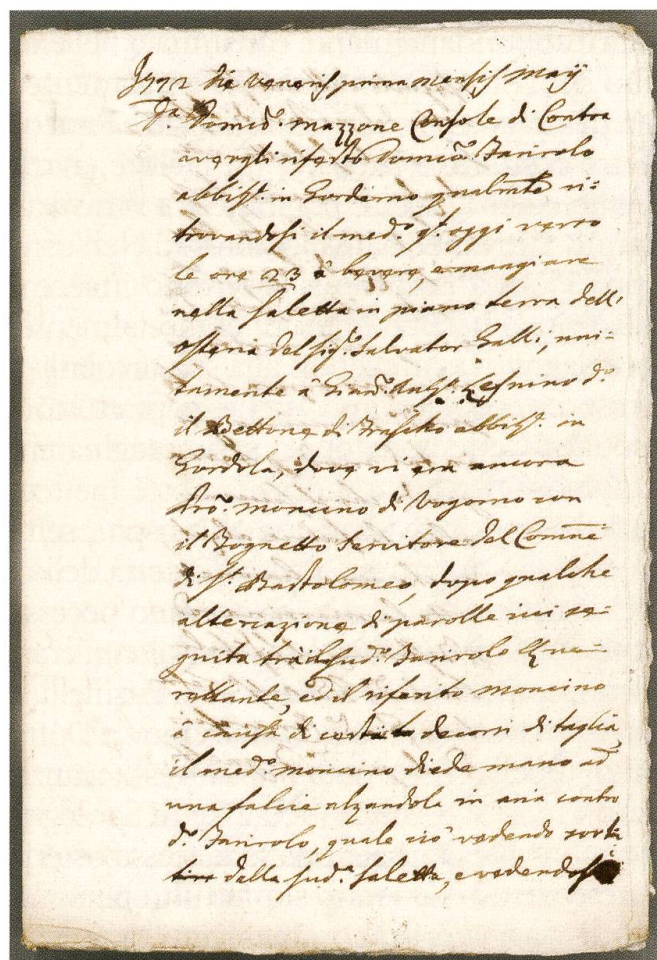 1772 die veneris prima mensis Maij
Domco. Mazzone Console di Contra
avergli riferto Domco. Barirolo
abbitte. in Gordemo qualmte. ri=
trovandosi il medo. gi. oggi verso
le ore 23 à bevere, e mangiare
nella saletta in piano terra dell'
osteria del sigr. Salvator Galli, uni=
tamente à do.
il Bettone di Frasco abbitte. in
Gordola, dove vi era ancora
Moncino di Vogorno con
il Bognetto servitore del Comme.
di Sn. Bartolomeo, dopo qualche
altercazione di parolle ivi se=
guita trà il sudo. Barirolo Que=
rellante, ed il riferito Moncino
à causa di decorsi di taglia,
il medo. Moncino diede mano ad
una falcie alzandola in aria contro
do. Barirolo, quale ciò vedendo sortì
della suda. saletta, e vedendosi